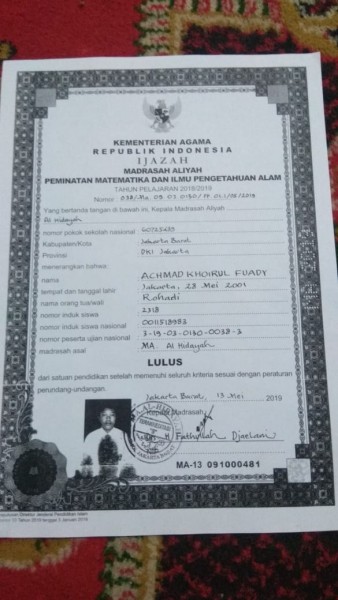 KEMENTERIAN AGAMA
REPUBLIK INDONESIA
IJAZAH
MADRASAH ALIYAH
PEMINATAN MATEMATIKA DAN ILMU PENGETAHUAN ALAM
TAHUN PELAJARAN 2018/2019
Nomor
Yang bertanda tangan di bawah ini, Kepala Madrasah Aliyah
Al Hidayah
nomor pokok sekolah nasional
Kabupaten/Kota Jakarta Barat
Provinsi DKI Jakarta
menerangkan bahwa:
nama ACHMAD KHOIRUL FUADY
tempat dan tanggal lahir Jakarta, 28 Mei 2001
nama orang tua/wali Rohadi
nomor induk siswa 2318
nomor induk siswa nasional
nomor peserta ujian nasional 3-19-03-0130-0038-3
madrasah asal MA. Al Hidayah
LULUS
dari satuan pendidikan setelah memenuhi seluruh kriteria sesuai dengan peraturan
perundang-undangan.
Jakarta Barat, 13 Mei 2019
Kepala Madrasah
H Fathullah Djaelani
MA-13 091000481